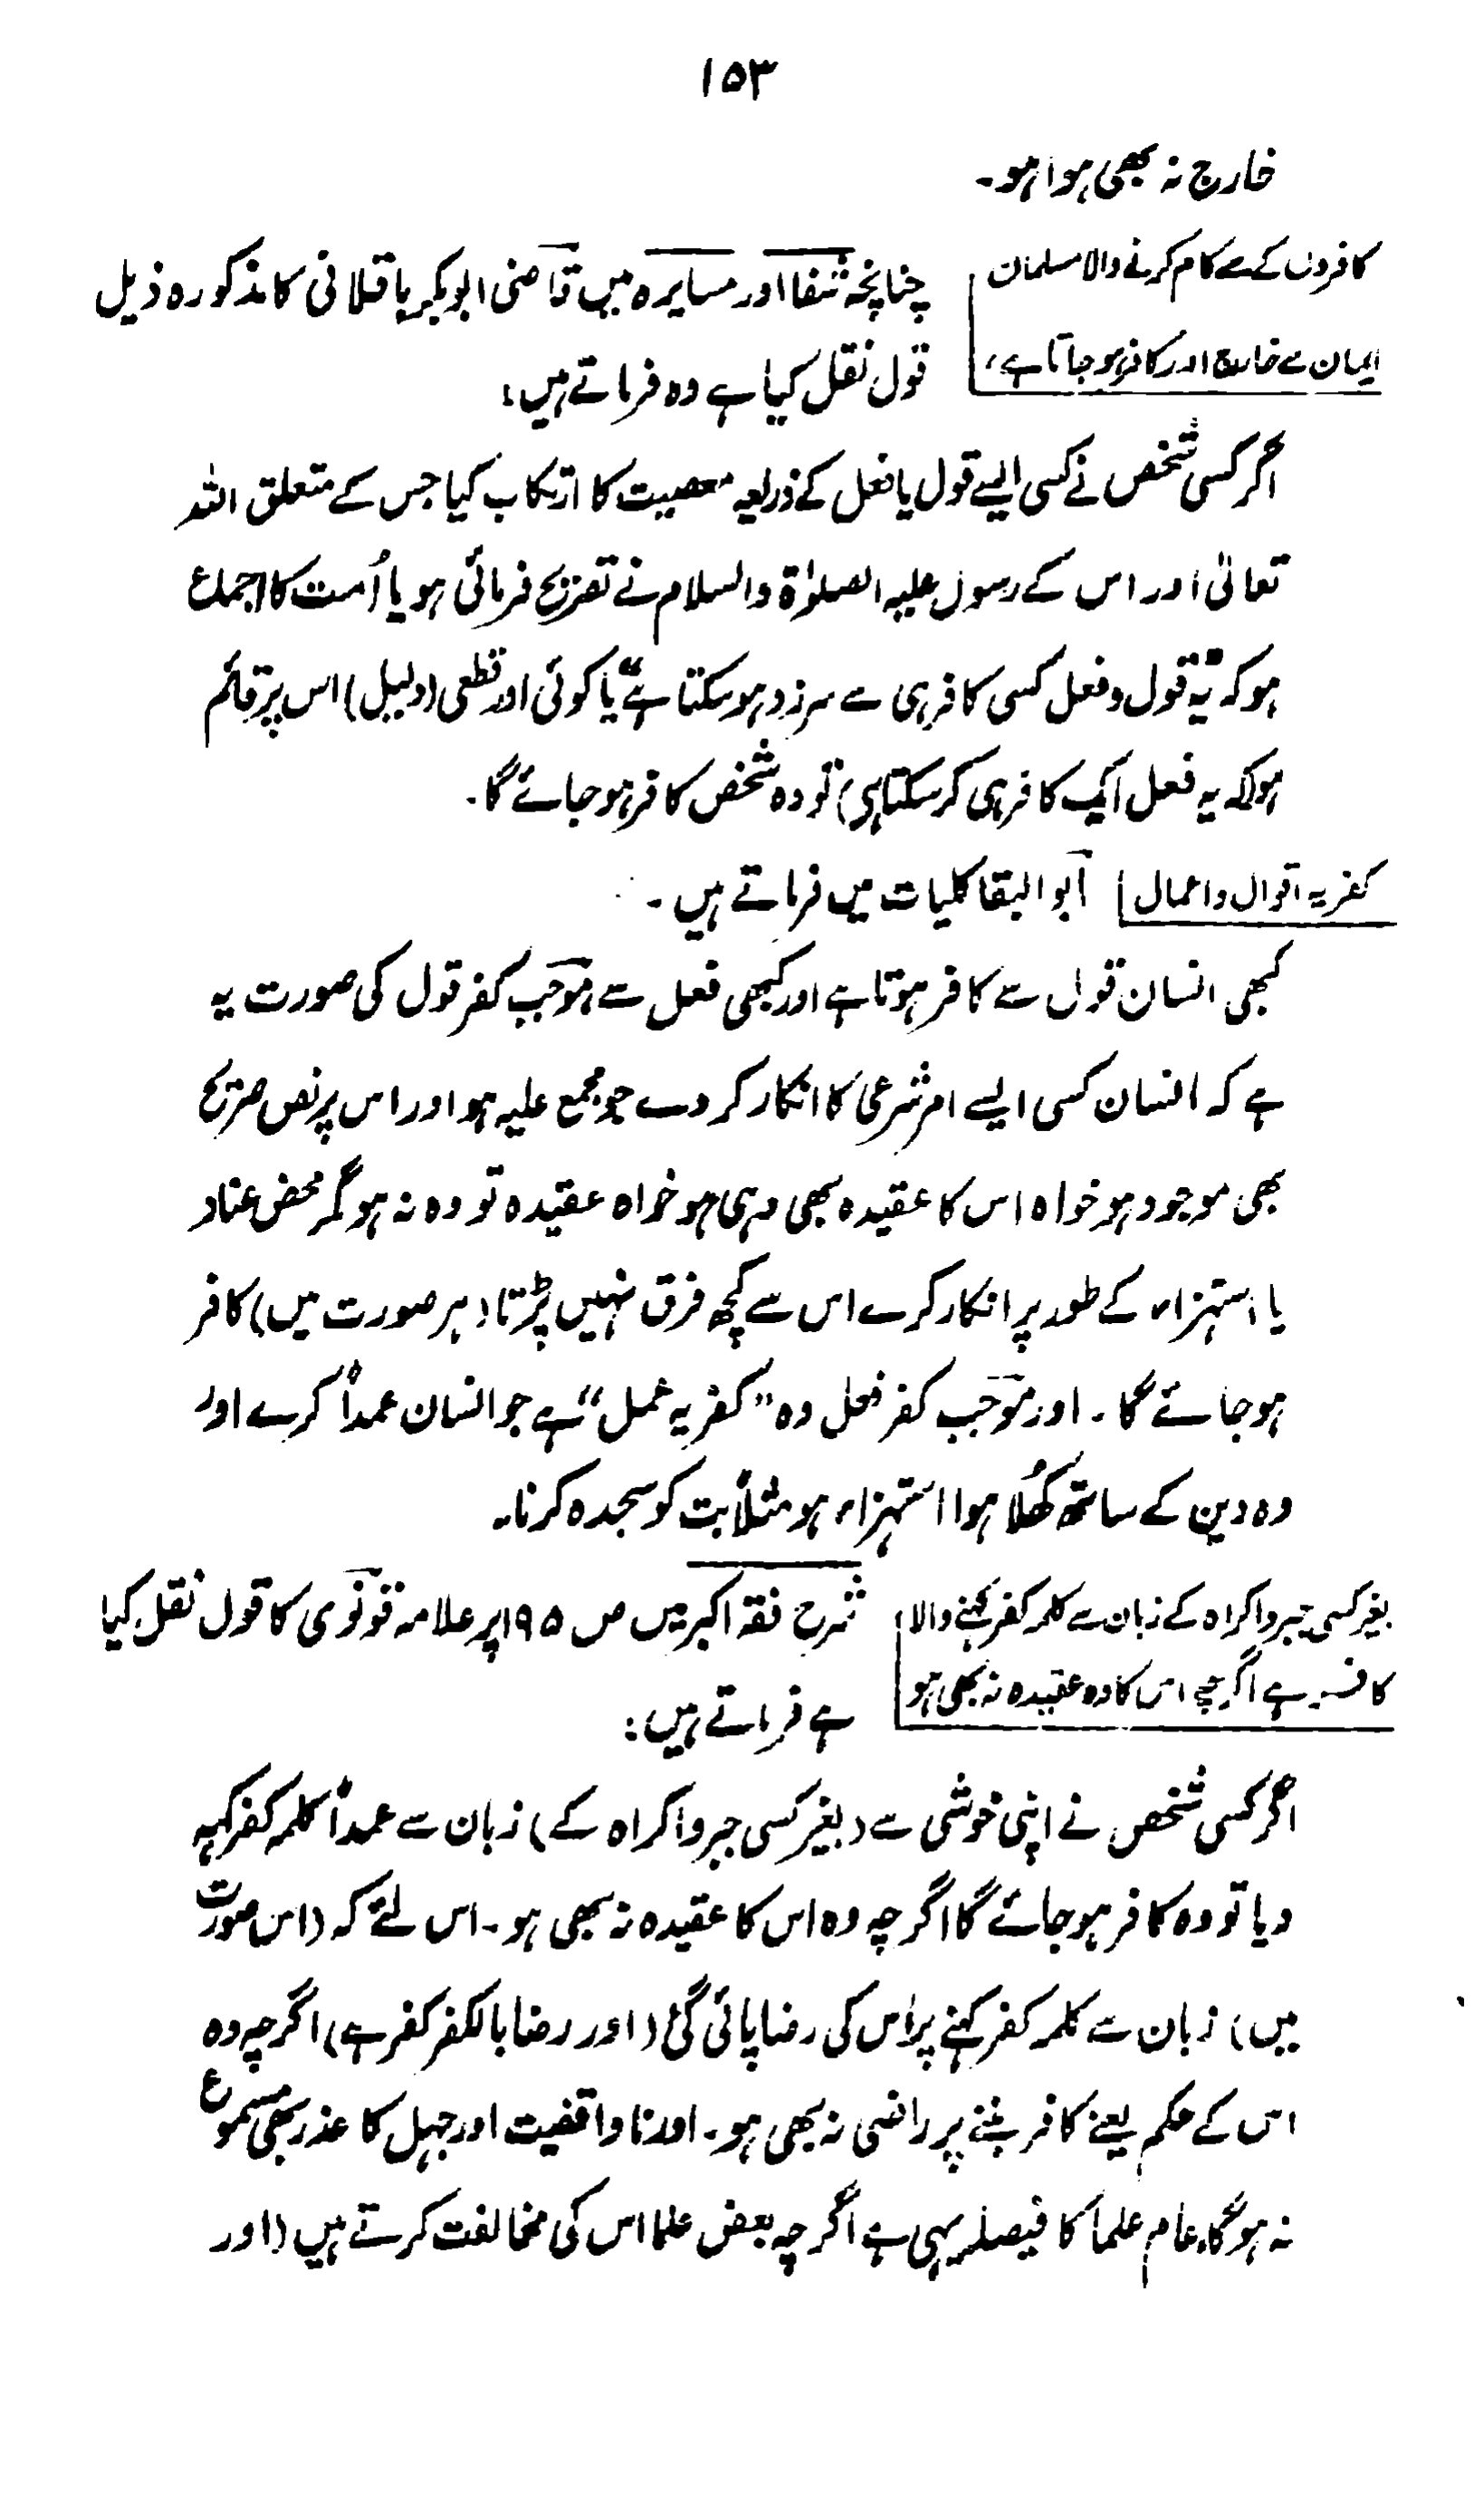 ۱۵۳
خارج نہ بھی ہوا ہو۔
کافروں کے سے کام کرنے والا مسلمان
ایمان سے خارج اور کافر ہو جاتا ہے،
چنانچہ شفا اور مسایرہ میں قاضی ابوبکر باقلانی کا مذکورہ ذیل
قول نقل کیا ہے وہ فرماتے ہیں:
اگر کسی شخص نے کسی ایسے قول یا فعل کے ذریعہ معصیت کا ارتکاب کیا جس کے متعلق اللہ
تعالیٰ اور اس کے رسول علیہ الصلوٰۃ والسلام نے تصریح فرمائی ہو یا اُمت کا اجماع
ہو کہ "یہ قول و فعل کسی کافر ہی سے سرزد ہو سکتا ہے" یا کوئی اور قطعی (دلیل) اس پر قائم
ہو (کہ یہ فعل ایک کافر ہی کر سکتا ہے) تو وہ شخص کافر ہو جائے گا۔
کفریہ اقوال و اعمال
ابو البقا کلیات میں فرماتے ہیں۔
کبھی انسان قول سے کافر ہوتا ہے اور کبھی فعل سے، موجب کفر قول کی صورت یہ
ہے کہ انسان کسی ایسے امر شرعی کا انکار کر دے جو مجمع علیہ ہو اور اس پر نص صریح
بھی موجود ہو خواہ اس کا عقیدہ بھی وہی ہو خواہ عقیدہ تو وہ نہ ہو مگر محض عناد
یا استہزاء کے طور پر انکار کرے اس سے کچھ فرق نہیں پڑتا (ہر صورت میں) کافر
ہو جائے گا۔ اور موجب کفر فعل وہ "کفریہ عمل" ہے جو انسان عمداً کرے اور
وہ دین کے ساتھ کھُلا ہوا استہزاء ہو مثلاً بت کو سجدہ کرنا۔
بغیر کسی جبر و اکراہ کے زبان سے کلمہ کفر کہنے والا
کافر ہے اگرچہ اس کا وہ عقیدہ نہ بھی ہو
شرح فقہ اکبر میں ص ۱۹۵ پر علامہ قونوی کا قول نقل کیا
ہے فرماتے ہیں:
اگر کسی شخص نے اپنی خوشی سے (بغیر کسی جبر و اکراہ کے) زبان سے عمداً کلمہ کفر کہہ
دیا تو وہ کافر ہو جائے گا اگرچہ وہ اس کا عقیدہ نہ بھی ہو۔ اس لئے کہ (اس صورت
میں) زبان سے کلمہ کفر کہنے پر اس کی رضا پائی گئی (اور رضا بالکفر کفر ہے) اگرچہ وہ
اس کے حکم یعنے کافر بننے پر راضی نہ بھی ہو۔ اور ناواقفیت اور جہل کا عذر بھی مسموع
نہ ہو گا، عام علما کا فیصلہ یہی ہے اگرچہ بعض علما اس کی مخالفت کرتے ہیں (اور